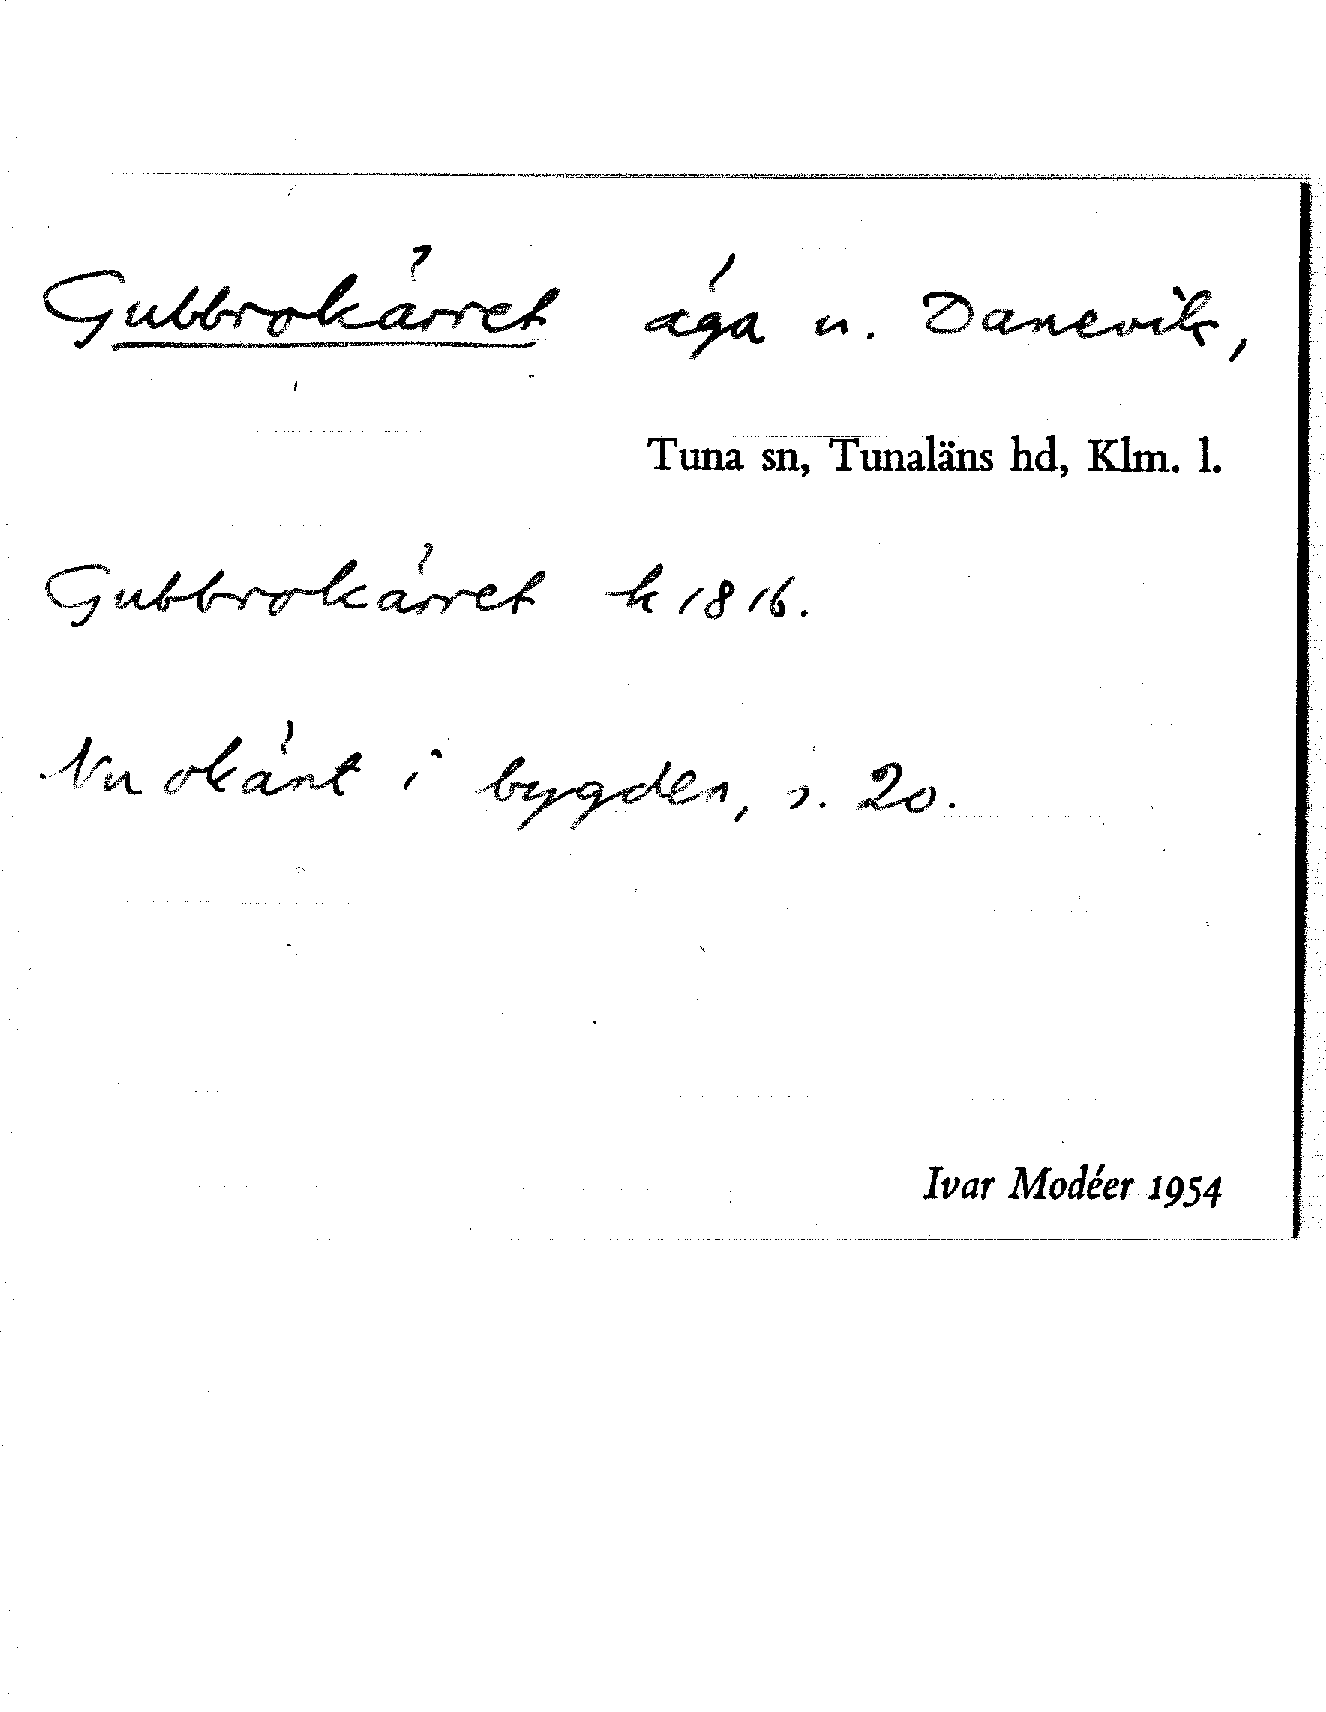 Gubbrokärret äga u. Danevik,
Tuna sn, Tunaläns hd, Klm. l.
Gubbrokärret k 1816.
Nu okänt i bygden, s. 20.
Ivar Modéer 1954